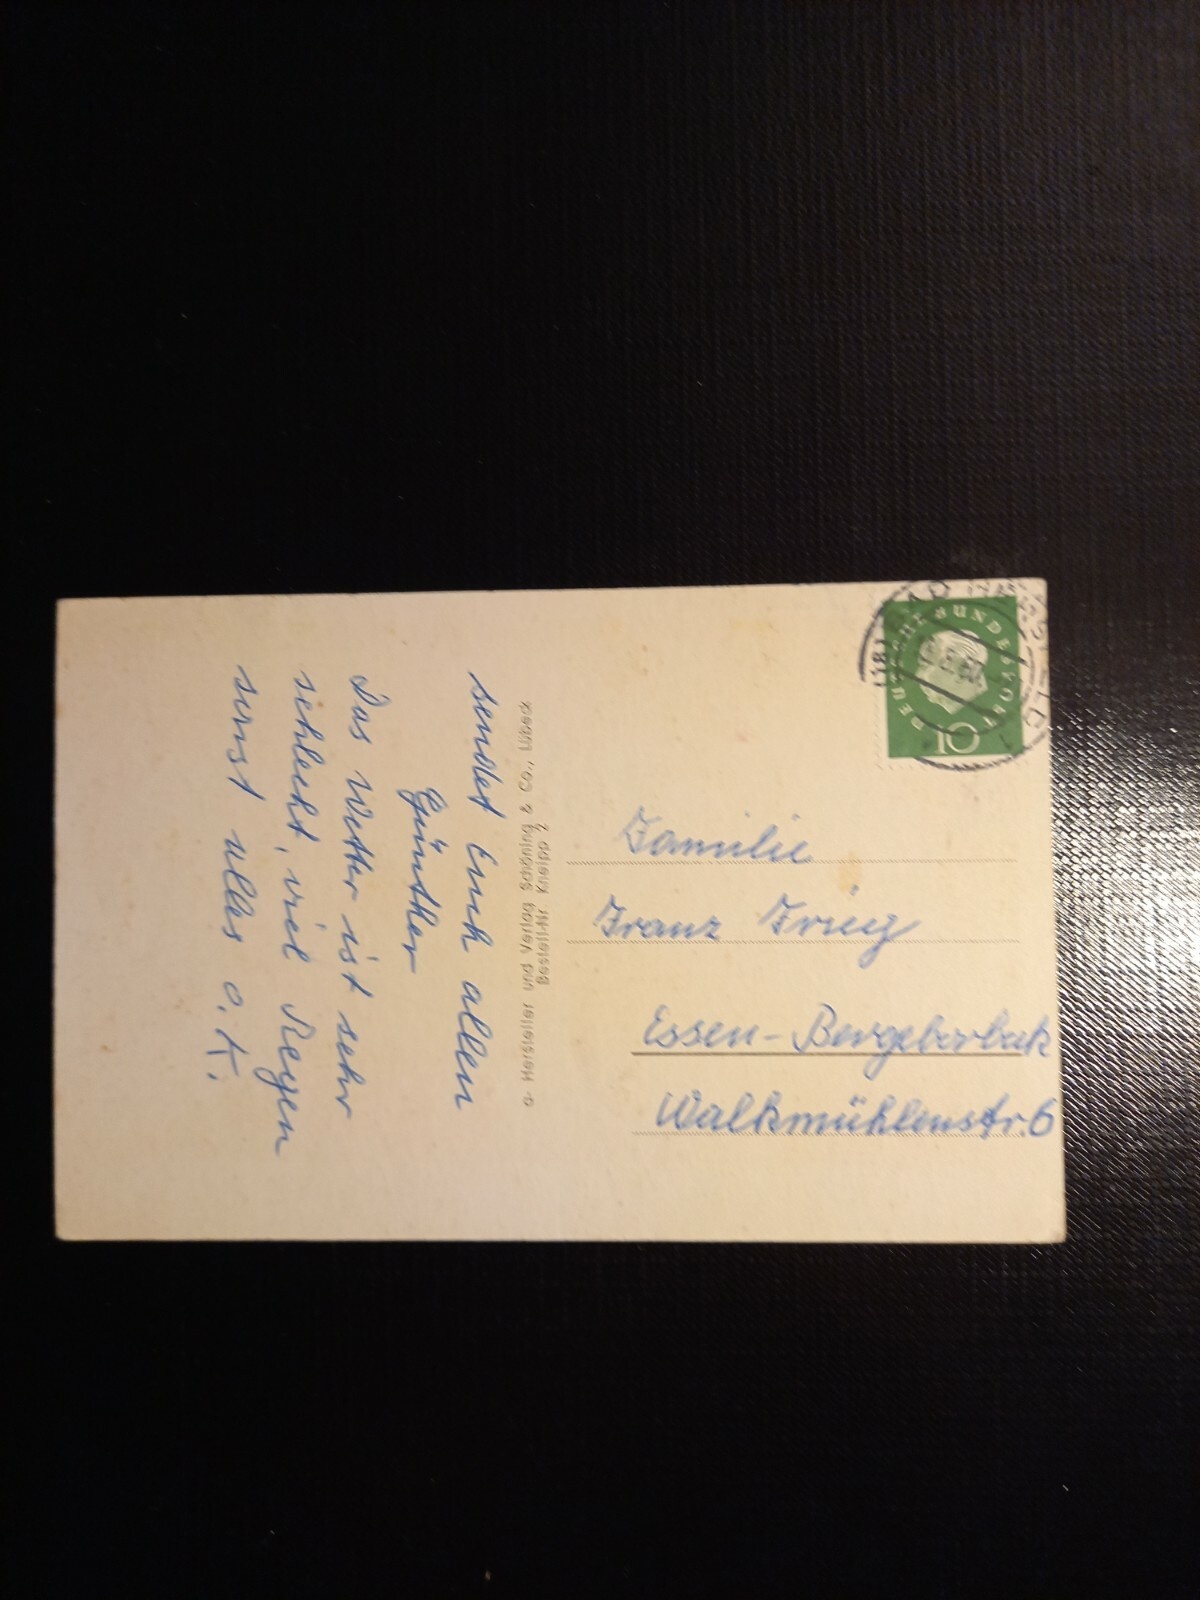 sendet Euch allen
Günther
Das Wetter ist sehr
schlecht, viel Regen
sonst alles o.K.
Hersteller und Verlag Schöning & Co., Lübeck
Bestell-Nr. Kneipp
DEUTSCHE BUNDESPOST
10
Familie
Franz
Essen-Bergeborbeck
Walkmühlenstr. 6